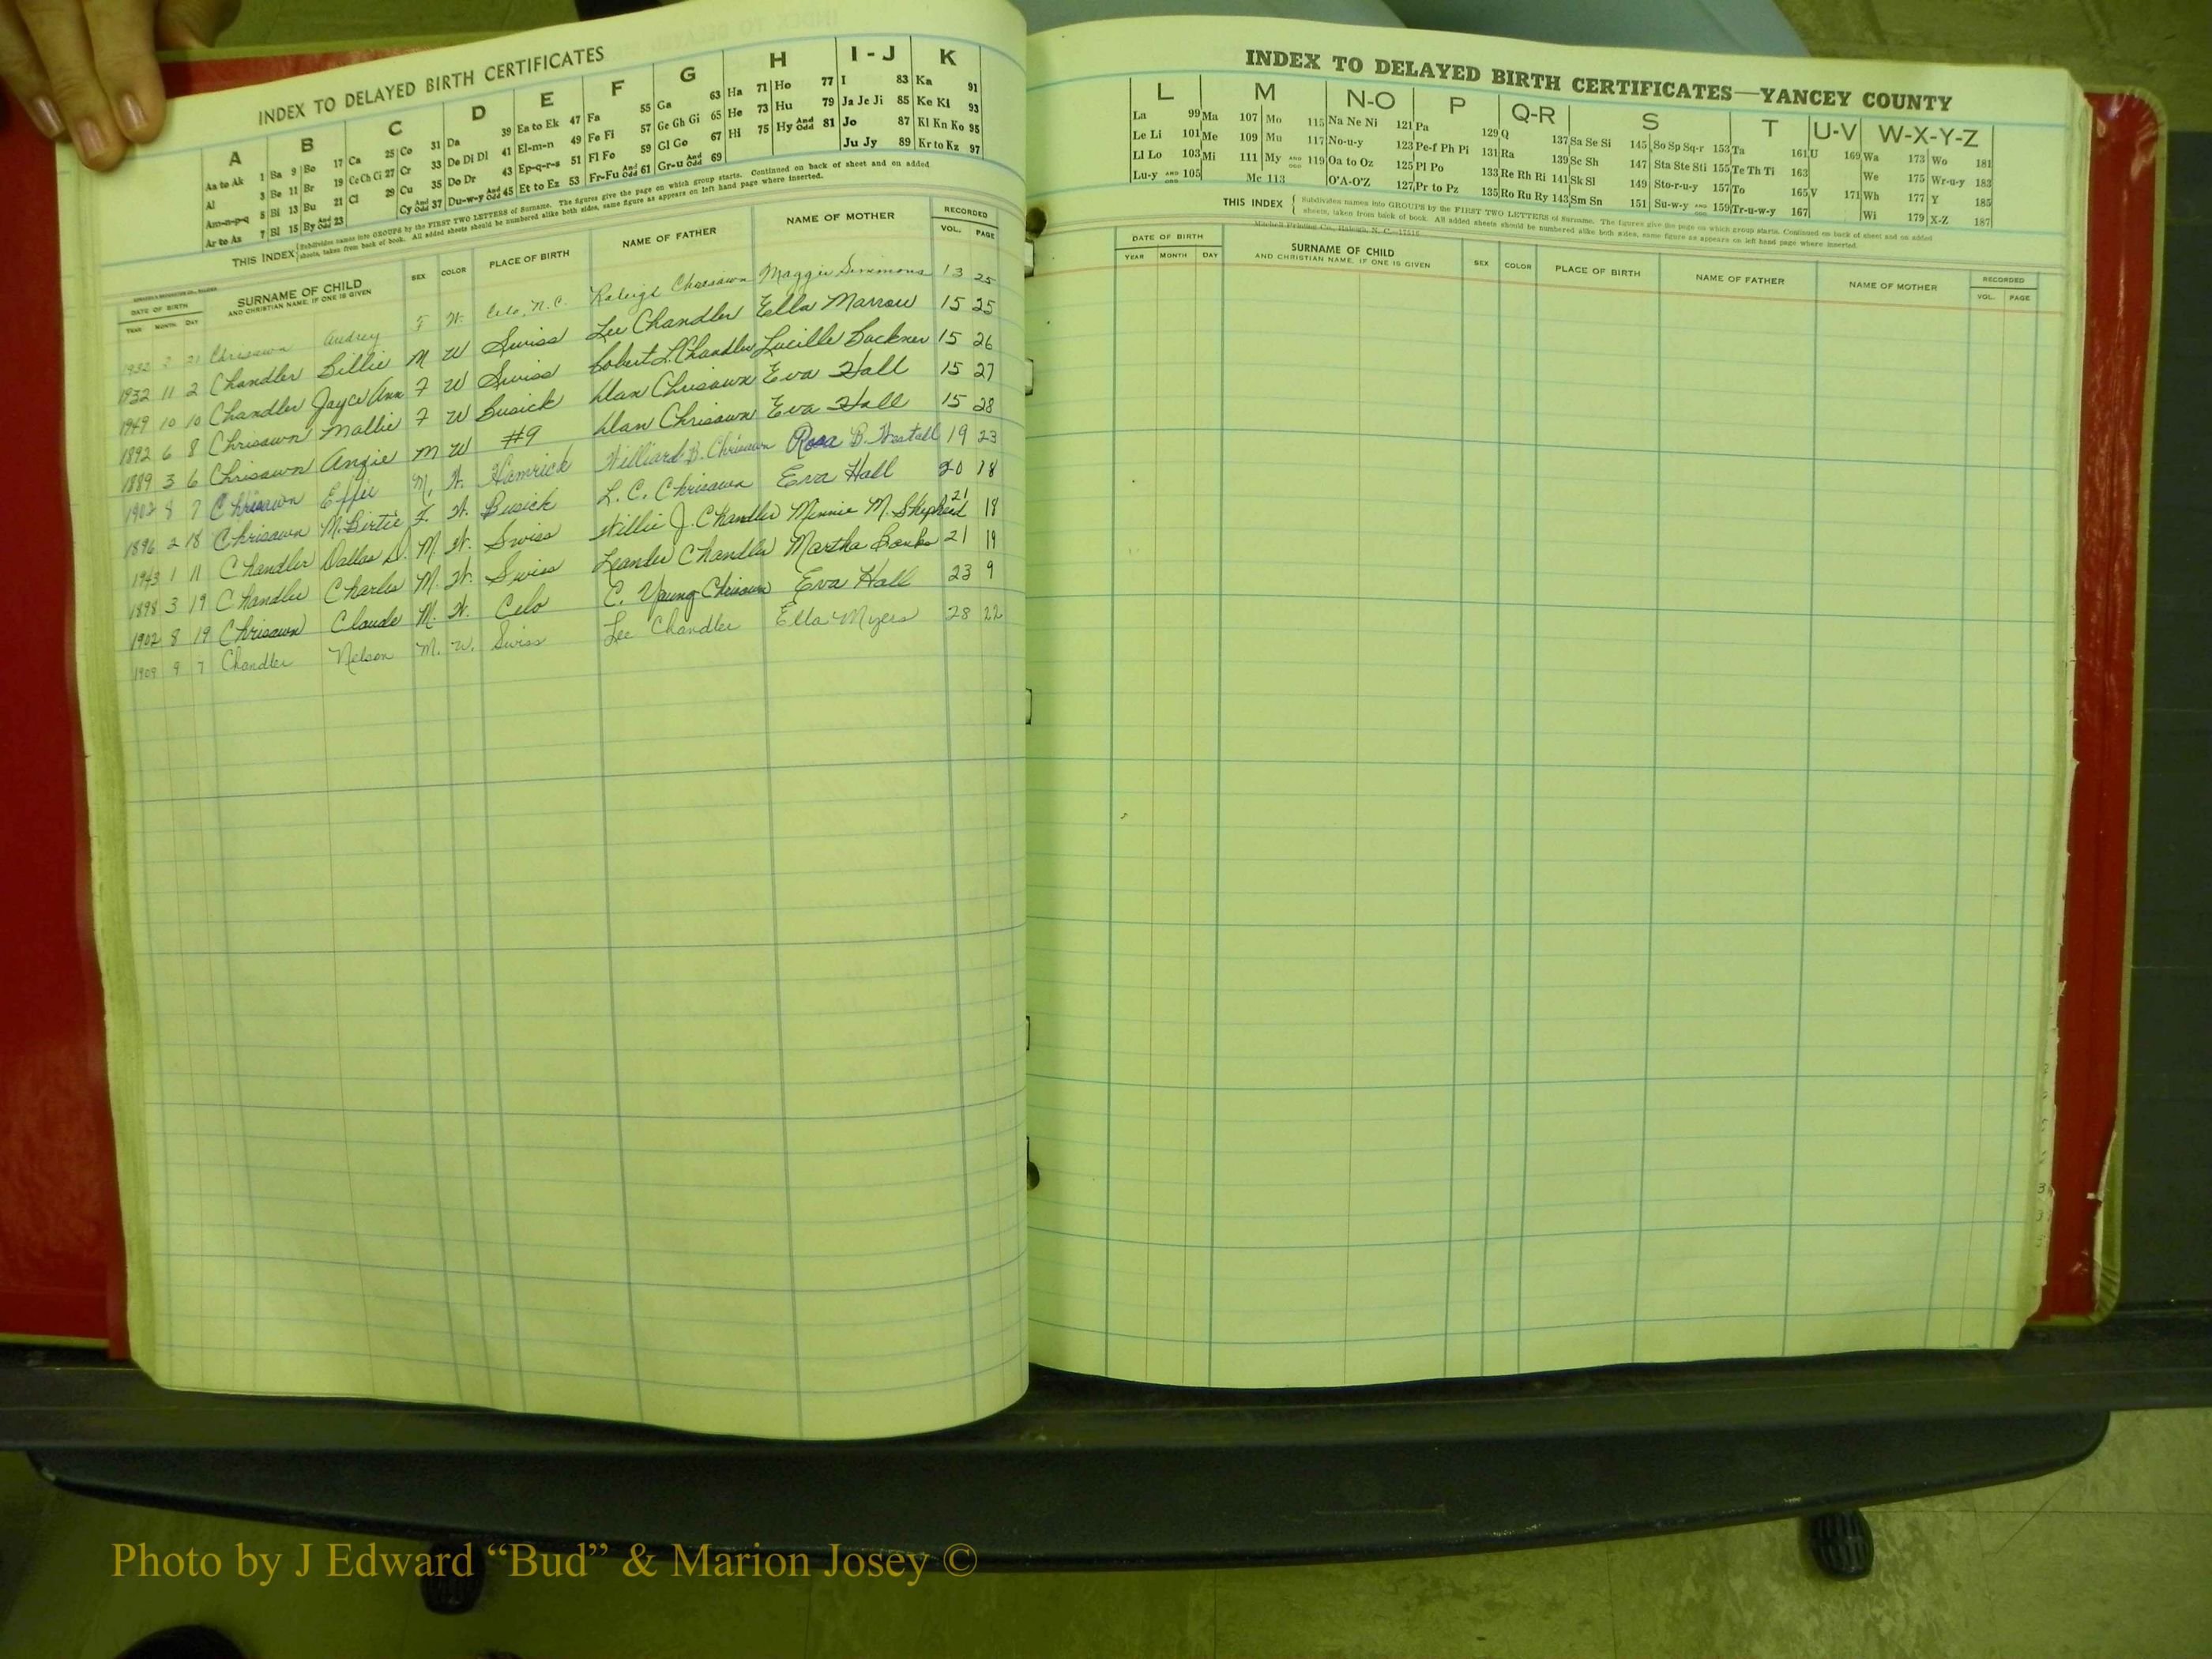 INDEX TO DELAYED BIRTH CERTIFICATES
A B C D E F G H I - J K
Aa to Ak 1 Ba 9 Bo 17 Ca 25 Co 31 Da 39 Ea to Ek 47 Fa 55 Ga 63 Ha 71 Ho 77 I 83 Ka 91
Al 3 Be 11 Br 19 Ce Ch Ci 27 Cr 33 De Di Dl 41 El-m-n 49 Fe Fi 57 Ge Gh Gi 65 He 73 Hu 79 Ja Je Ji 85 Ke Ki 93
Am-n-p-q 5 Bi 13 Bu 21 Cl 29 Cu 35 Do Dr 43 Ep-q-r-s 51 Fl Fo 59 Gl Go 67 Hi 75 Hy And Odd 81 Jo 87 Kl Kn Ko 95
Ar to Az 7 Bl 15 By And Odd 23 Cy And Odd 37 Du-w-y And Odd 45 Et to Ez 53 Fr-Fu And Odd 61 Gr-u And Odd 69 Ju Jy 89 Kr to Kz 97
THIS INDEX Subdivides names into GROUPS by the FIRST TWO LETTERS of Surname. The figures give the page on which group starts. Continued on back of sheet and on added
sheets, taken from back of book. All added sheets should be numbered alike both sides, same figure as appears on left hand page where inserted.
DATE OF BIRTH SURNAME OF CHILD SEX COLOR PLACE OF BIRTH NAME OF FATHER NAME OF MOTHER RECORDED
YEAR MONTH DAY AND CHRISTIAN NAME, IF ONE IS GIVEN VOL. PAGE
1932 2 21 Chrisawn Audrey F W. Celo, N.C. Raleigh Chrisawn Maggie Simmons 13 25
1932 11 2 Chandler Billie M W Swiss Lee Chandler Ella Marrow 15 25
1949 10 10 Chandler Jayce Ann F W Swiss Robert L. Chandler Lucille Buckner 15 26
1892 6 8 Chrisawn Mallie F W Busick Dan Chrisawn Eva Hall 15 27
1889 3 6 Chrisawn Angie M W #9 Dan Chrisawn Eva Hall 15 28
1902 8 7 Chrisawn Effie M. W. Hamrick Williard B. Chrisawn Rosa B. Westall 19 23
1896 2 18 Chrisawn M. Birtie F. W. Busick L. C. Chrisawn Eva Hall 20 18
1943 1 11 Chandler Dallas D. M. W. Swiss Willie J. Chandler Minnie M. Shepherd 21 18
1898 3 19 Chandler Charles M. W. Swiss Leander Chandler Martha Banks 21 19
1902 8 19 Chrisawn Claude M. W. Celo C. Young Chrisawn Eva Hall 23 9
1909 9 7 Chandler Nelson M. W. Swiss Lee Chandler Ella Myers 28 22
INDEX TO DELAYED BIRTH CERTIFICATES—YANCEY COUNTY
L M N-O P Q-R S T U-V W-X-Y-Z
La 99 Ma 107 Mo 115 Na Ne Ni 121 Pa 129 Q 137 Sa Se Si 145 So Sp Sq-r 153 Ta 161 U 169 Wa 173 Wo 181
Le Li 101 Me 109 Mu 117 No-u-y 123 Pe-f Ph Pi 131 Ra 139 Sc Sh 147 Sta Ste Sti 155 Te Th Ti 163 We 175 Wr-u-y 183
Ll Lo 103 Mi 111 My AND ODD 119 Oa to Oz 125 Pl Po 133 Re Rh Ri 141 Sk Sl 149 Sto-r-u-y 157 To 165 V 171 Wh 177 Y 185
Lu-y AND ODD 105 Mc 113 O'A-O'Z 127 Pr to Pz 135 Ro Ru Ry 143 Sm Sn 151 Su-w-y AND ODD 159 Tr-u-w-y 167 Wi 179 X-Z 187
THIS INDEX Subdivides names into GROUPS by the FIRST TWO LETTERS of Surname. The figures give the page on which group starts. Continued on back of sheet and on added
sheets, taken from back of book. All added sheets should be numbered alike both sides, same figure as appears on left hand page where inserted.
Mitchell Printing Co., Raleigh, N. C.
DATE OF BIRTH SURNAME OF CHILD SEX COLOR PLACE OF BIRTH NAME OF FATHER NAME OF MOTHER RECORDED
YEAR MONTH DAY AND CHRISTIAN NAME, IF ONE IS GIVEN VOL. PAGE
Photo by J Edward “Bud” & Marion Josey ©